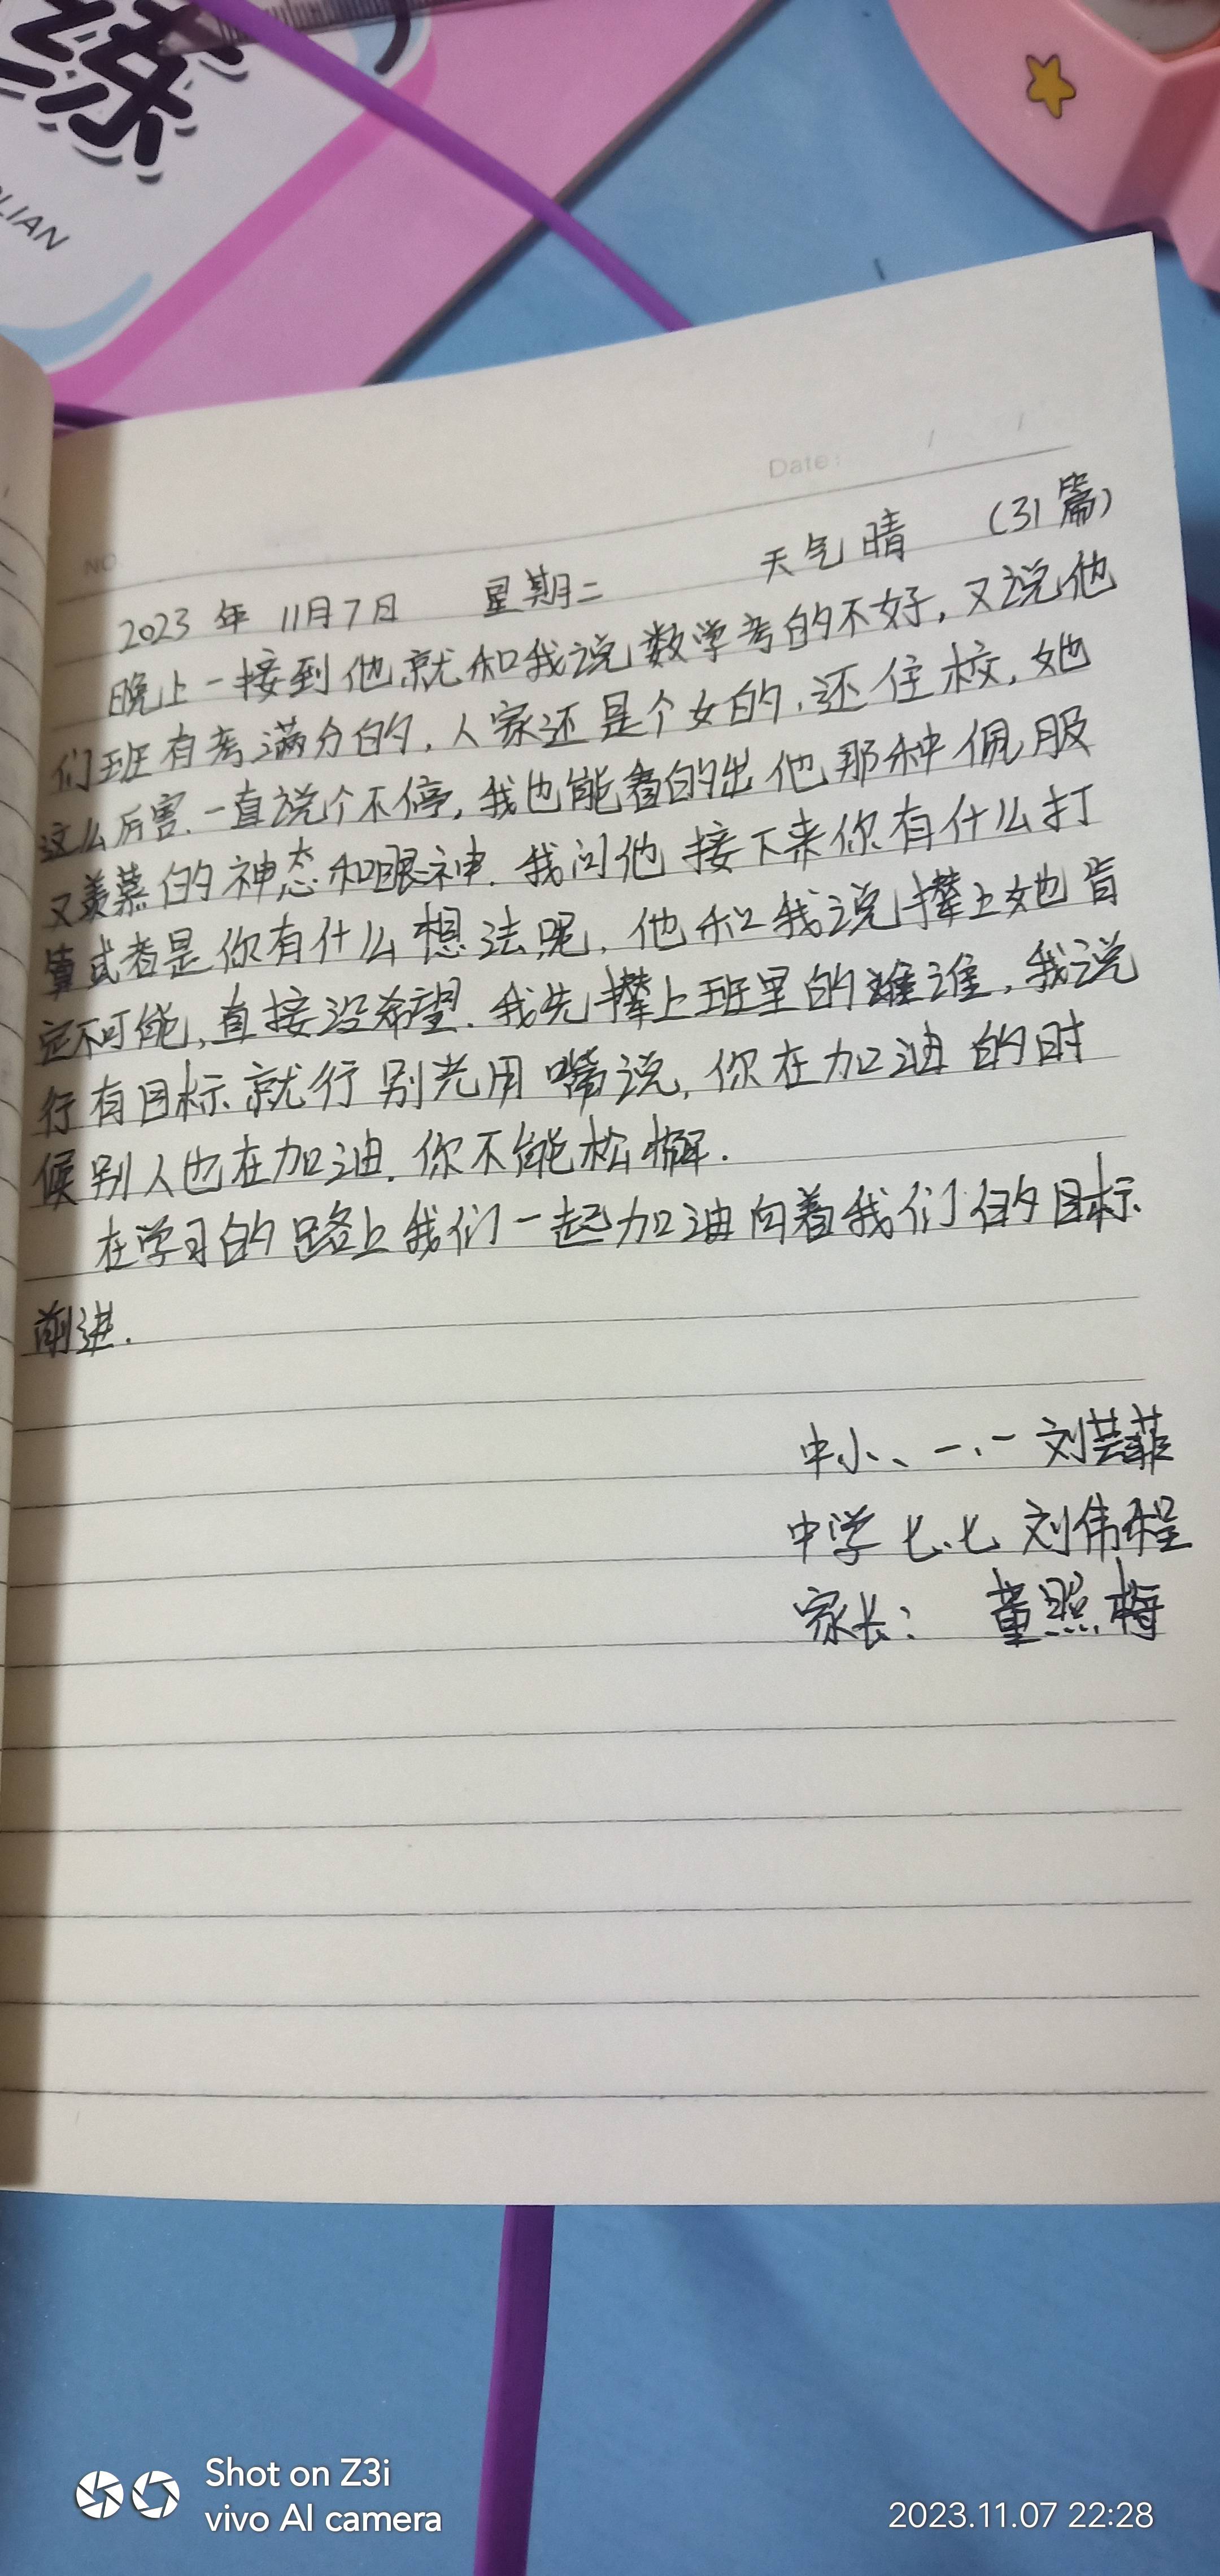 练
LIAN
Date: / /
NO
2023 年 11月7日 星期二 天气晴 (31篇)
晚上一接到他就和我说数学考的不好,又说他
们班有考满分的,人家还是个女的,还住校,她
这么厉害.一直说个不停,我也能看的出他那种佩服
又羡慕的神态和眼神.我问他接下来你有什么打
算或者是你有什么想法呢,他和我说撵上她肯
定不可能,直接没希望.我先撵上班里的谁谁,我说
行有目标就行别光用嘴说,你在加油的时
候别人也在加油.你不能松懈.
在学习的路上我们一起加油向着我们的目标
前进.
中小、一.一 刘芸菲
中学 七.七 刘伟程
家长: 董照梅
Shot on Z3i
vivo AI camera
2023.11.07 22:28